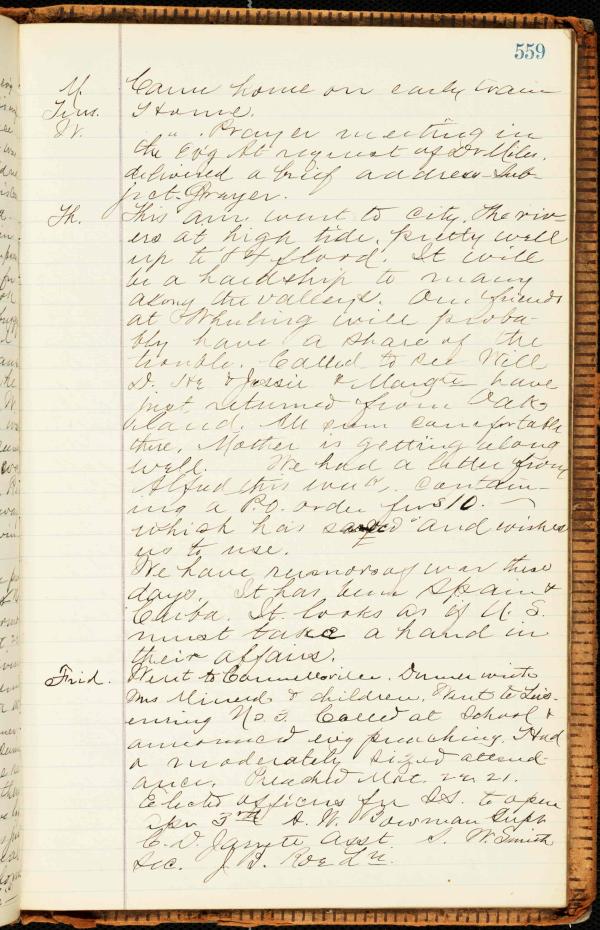 559
M. Came home on early train
Tues. Home.
W. " . Prayer meeting in
the Evg At request of Dr Miles.
delivered a brief address - Sub-
ject - Prayer.
Th. This am. went to city. The riv-
ers at high tide. pretty well
up to 84 flood. It will
be a hardship to many
along the valleys. Our friends
at Wheeling will proba-
bly have a share of the
trouble. Called to see Will
D. He & Jessie & Margie have
just returned from Oak-
land. All seem comfortable
there. Mother is getting along
well. We had a letter from
Alfred this week, contain-
ing a P.O. order for $10. —
which has and wishes
us to use.
We have rumors of war these
days. It has been Spain &
Cuba. It looks as if U.S.
must take a hand in
their affairs.
Frid. Went to Connellsville. Dinner with
Mrs Minerd & children. Went to Leis-
enring No. 3. Called at School &
announced evg preaching. Had
a moderately sized attend-
ance. Preached Mat. 22. 21.
Elected officers for S.S. to open
Apr 3rd A. W. Bowman Supt
C. D. Jarrett Asst. S. W. Smith
Sec. J. B. Roe